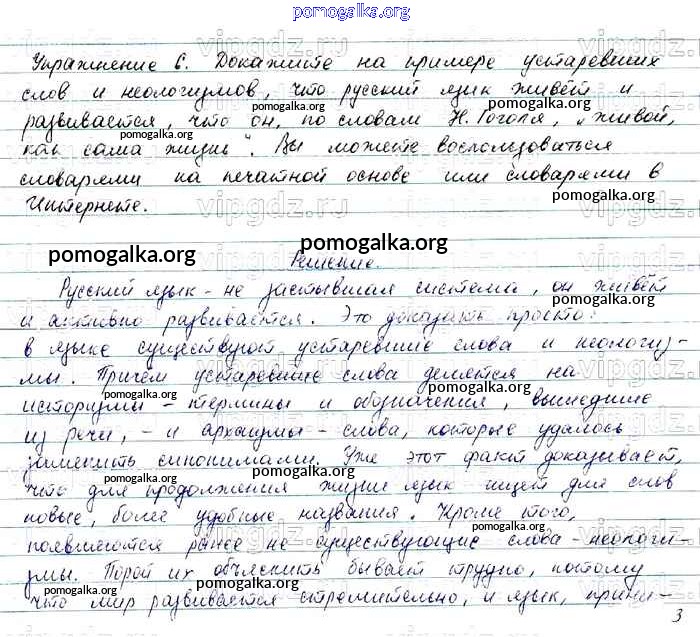 pomogalka.org
Упражнение 6. Докажите на примере устаревших
слов и неологизмов, что русский язык живёт и
развивается, что он, по словам Н. Гоголя, „живой,
как сама жизнь". Вы можете воспользоваться
словарями на печатной основе или словарями в
Интернете.
Решение.
Русский язык - не застывшая система, он живёт
и активно развивается. Это доказать просто:
в языке существуют устаревшие слова и неологиз-
мы. Причём устаревшие слова делятся на
историзмы - термины и обозначения, вышедшие
из речи, - и архаизмы - слова, которые удалось
заменить синонимами. Уже этот факт доказывает,
что для продолжения жизни язык ищет для слов
новые, более удобные названия. Кроме того,
появляются ранее не существующие слова - неологи-
змы. Порой их объяснить бывает трудно, потому
что мир развивается стремительно, и язык, прини-
3